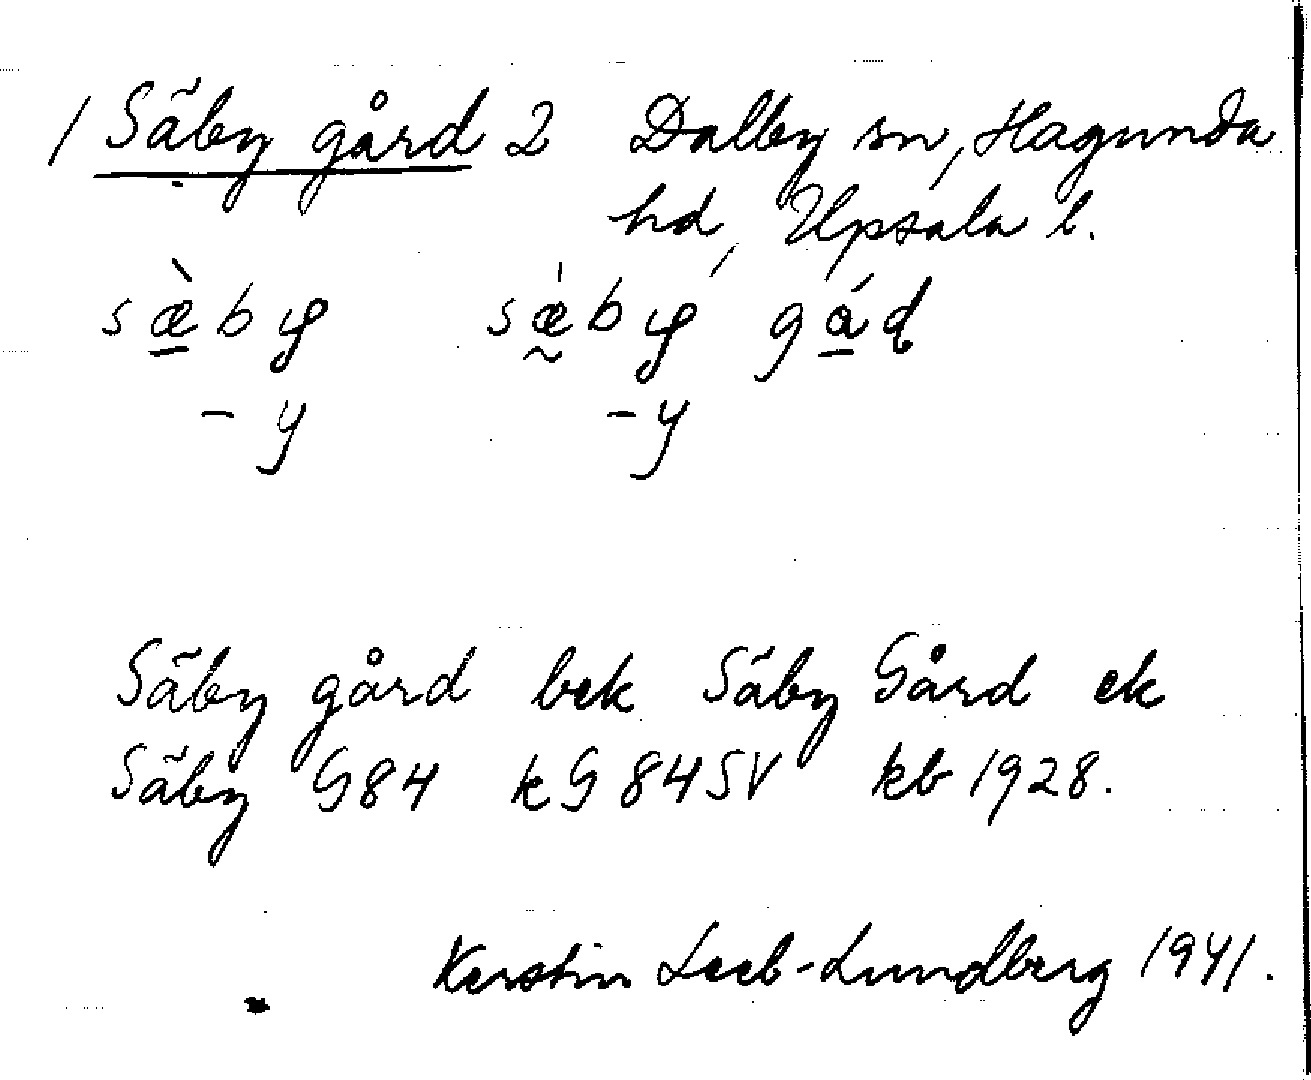 1 Säby gård 2 Dalby sn, Hagunda
hd, Upsala l.
sæ̀by sæ̀by gád
-y -y
Säby gård bek Säby Gård ek
Säby G84 kG 84SV kb 1928.
Kerstin Leeb-Lundberg 1941.